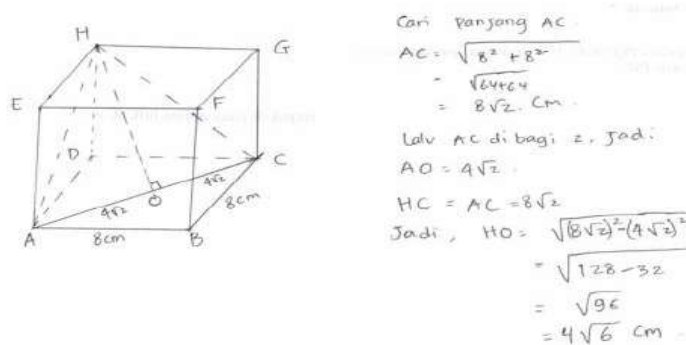 H
G
E
F
D
C
4√2
4√2
O
8cm
A
8cm
B
Cari panjang AC.
AC = √8² + 8²
= √64+64
= 8√2. Cm.
Lalu AC di bagi 2, Jadi:
AO = 4√2.
HC = AC = 8√2
Jadi, HO = √(8√2)²-(4√2)²
= √128-32
= √96
= 4√6 Cm.